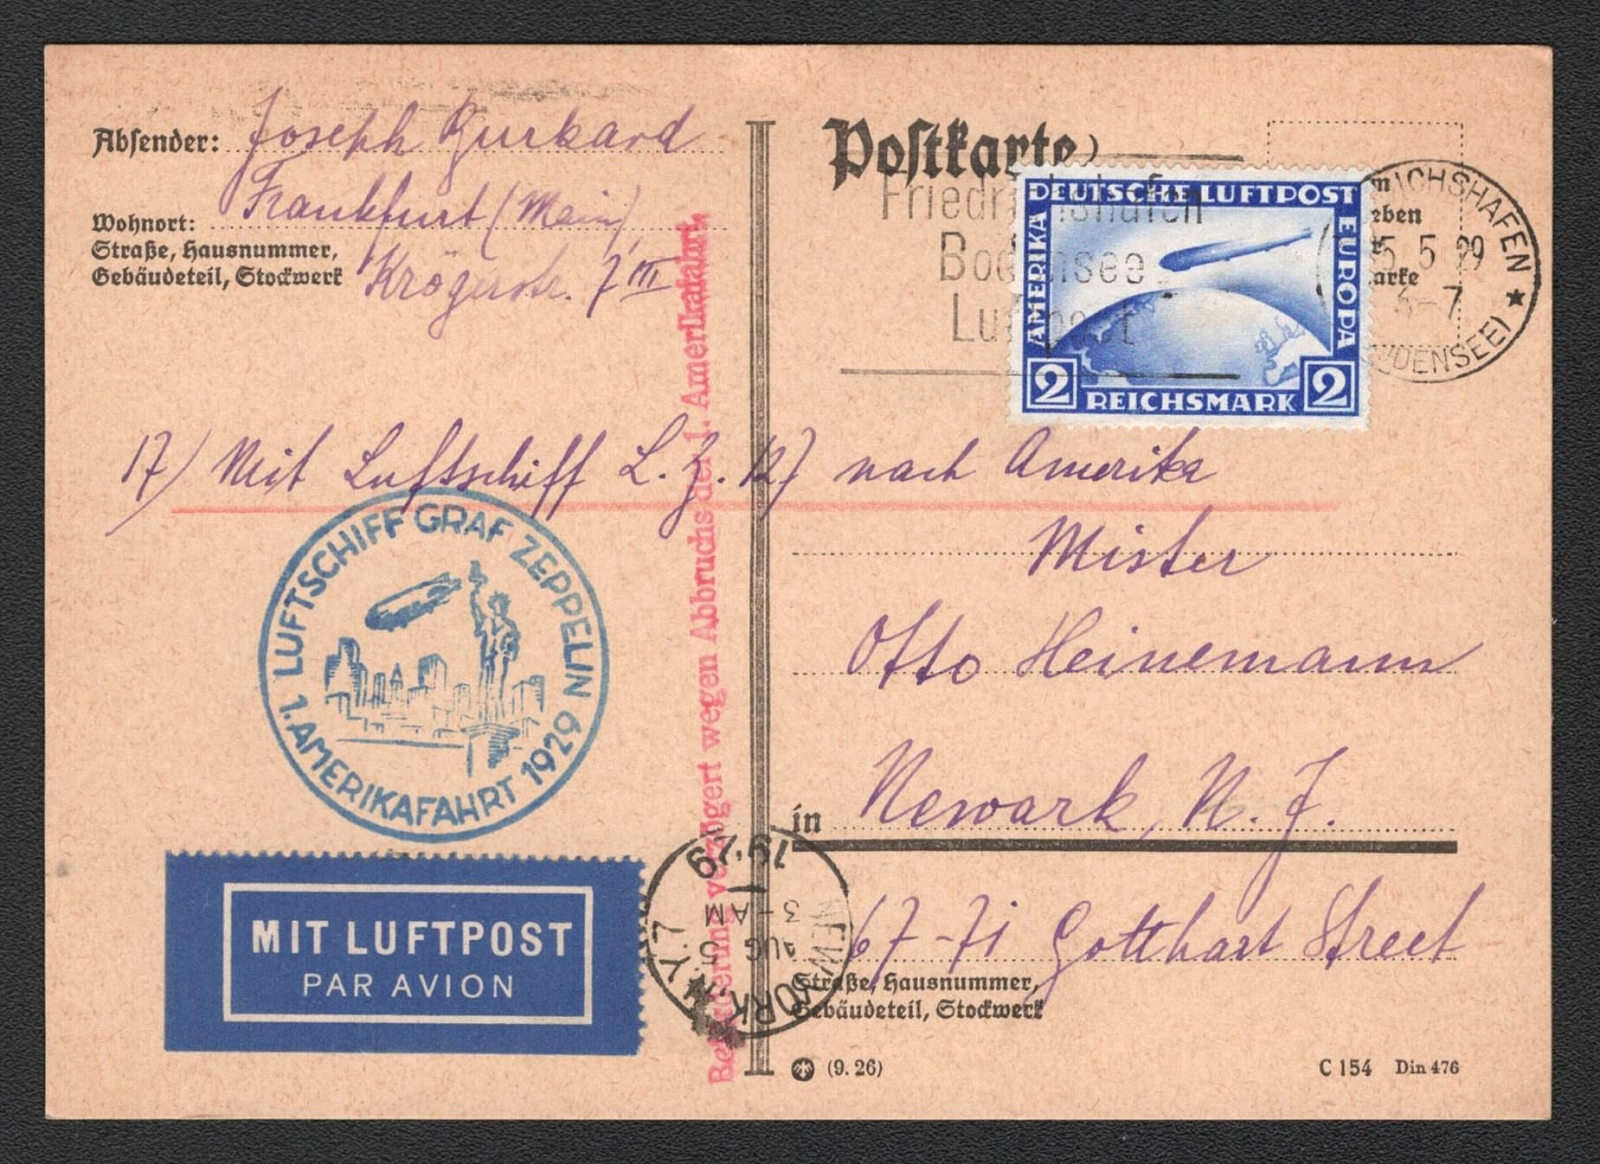 Absender: Joseph Burkard
Wohnort: Frankfurt (Main),
Straße, Hausnummer,
Gebäudeteil, Stockwerk Krögerstr. 7 III
Postkarte
Friedrichshafen
Bodensee
Luftpost
DEUTSCHE LUFTPOST
AMERIKA
EUROPA
2 REICHSMARK 2
5. 5 29
6-7
(BODENSEE)
17) Mit Luftschiff L. Z. 127 nach Amerika
Beförderung verzögert wegen Abbruchs der 1. Amerikafahrt
LUFTSCHIFF GRAF ZEPPELIN
1. AMERIKAFAHRT 1929
Mister
Otto Heinemann
in Newark, N. J.
67-71 Gotthart Street
Straße, Hausnummer,
Gebäudeteil, Stockwerk
MIT LUFTPOST
PAR AVION
NEW YORK, N.Y. 7
AUG 5
3-AM
1929
(9. 26)
C 154 Din 476